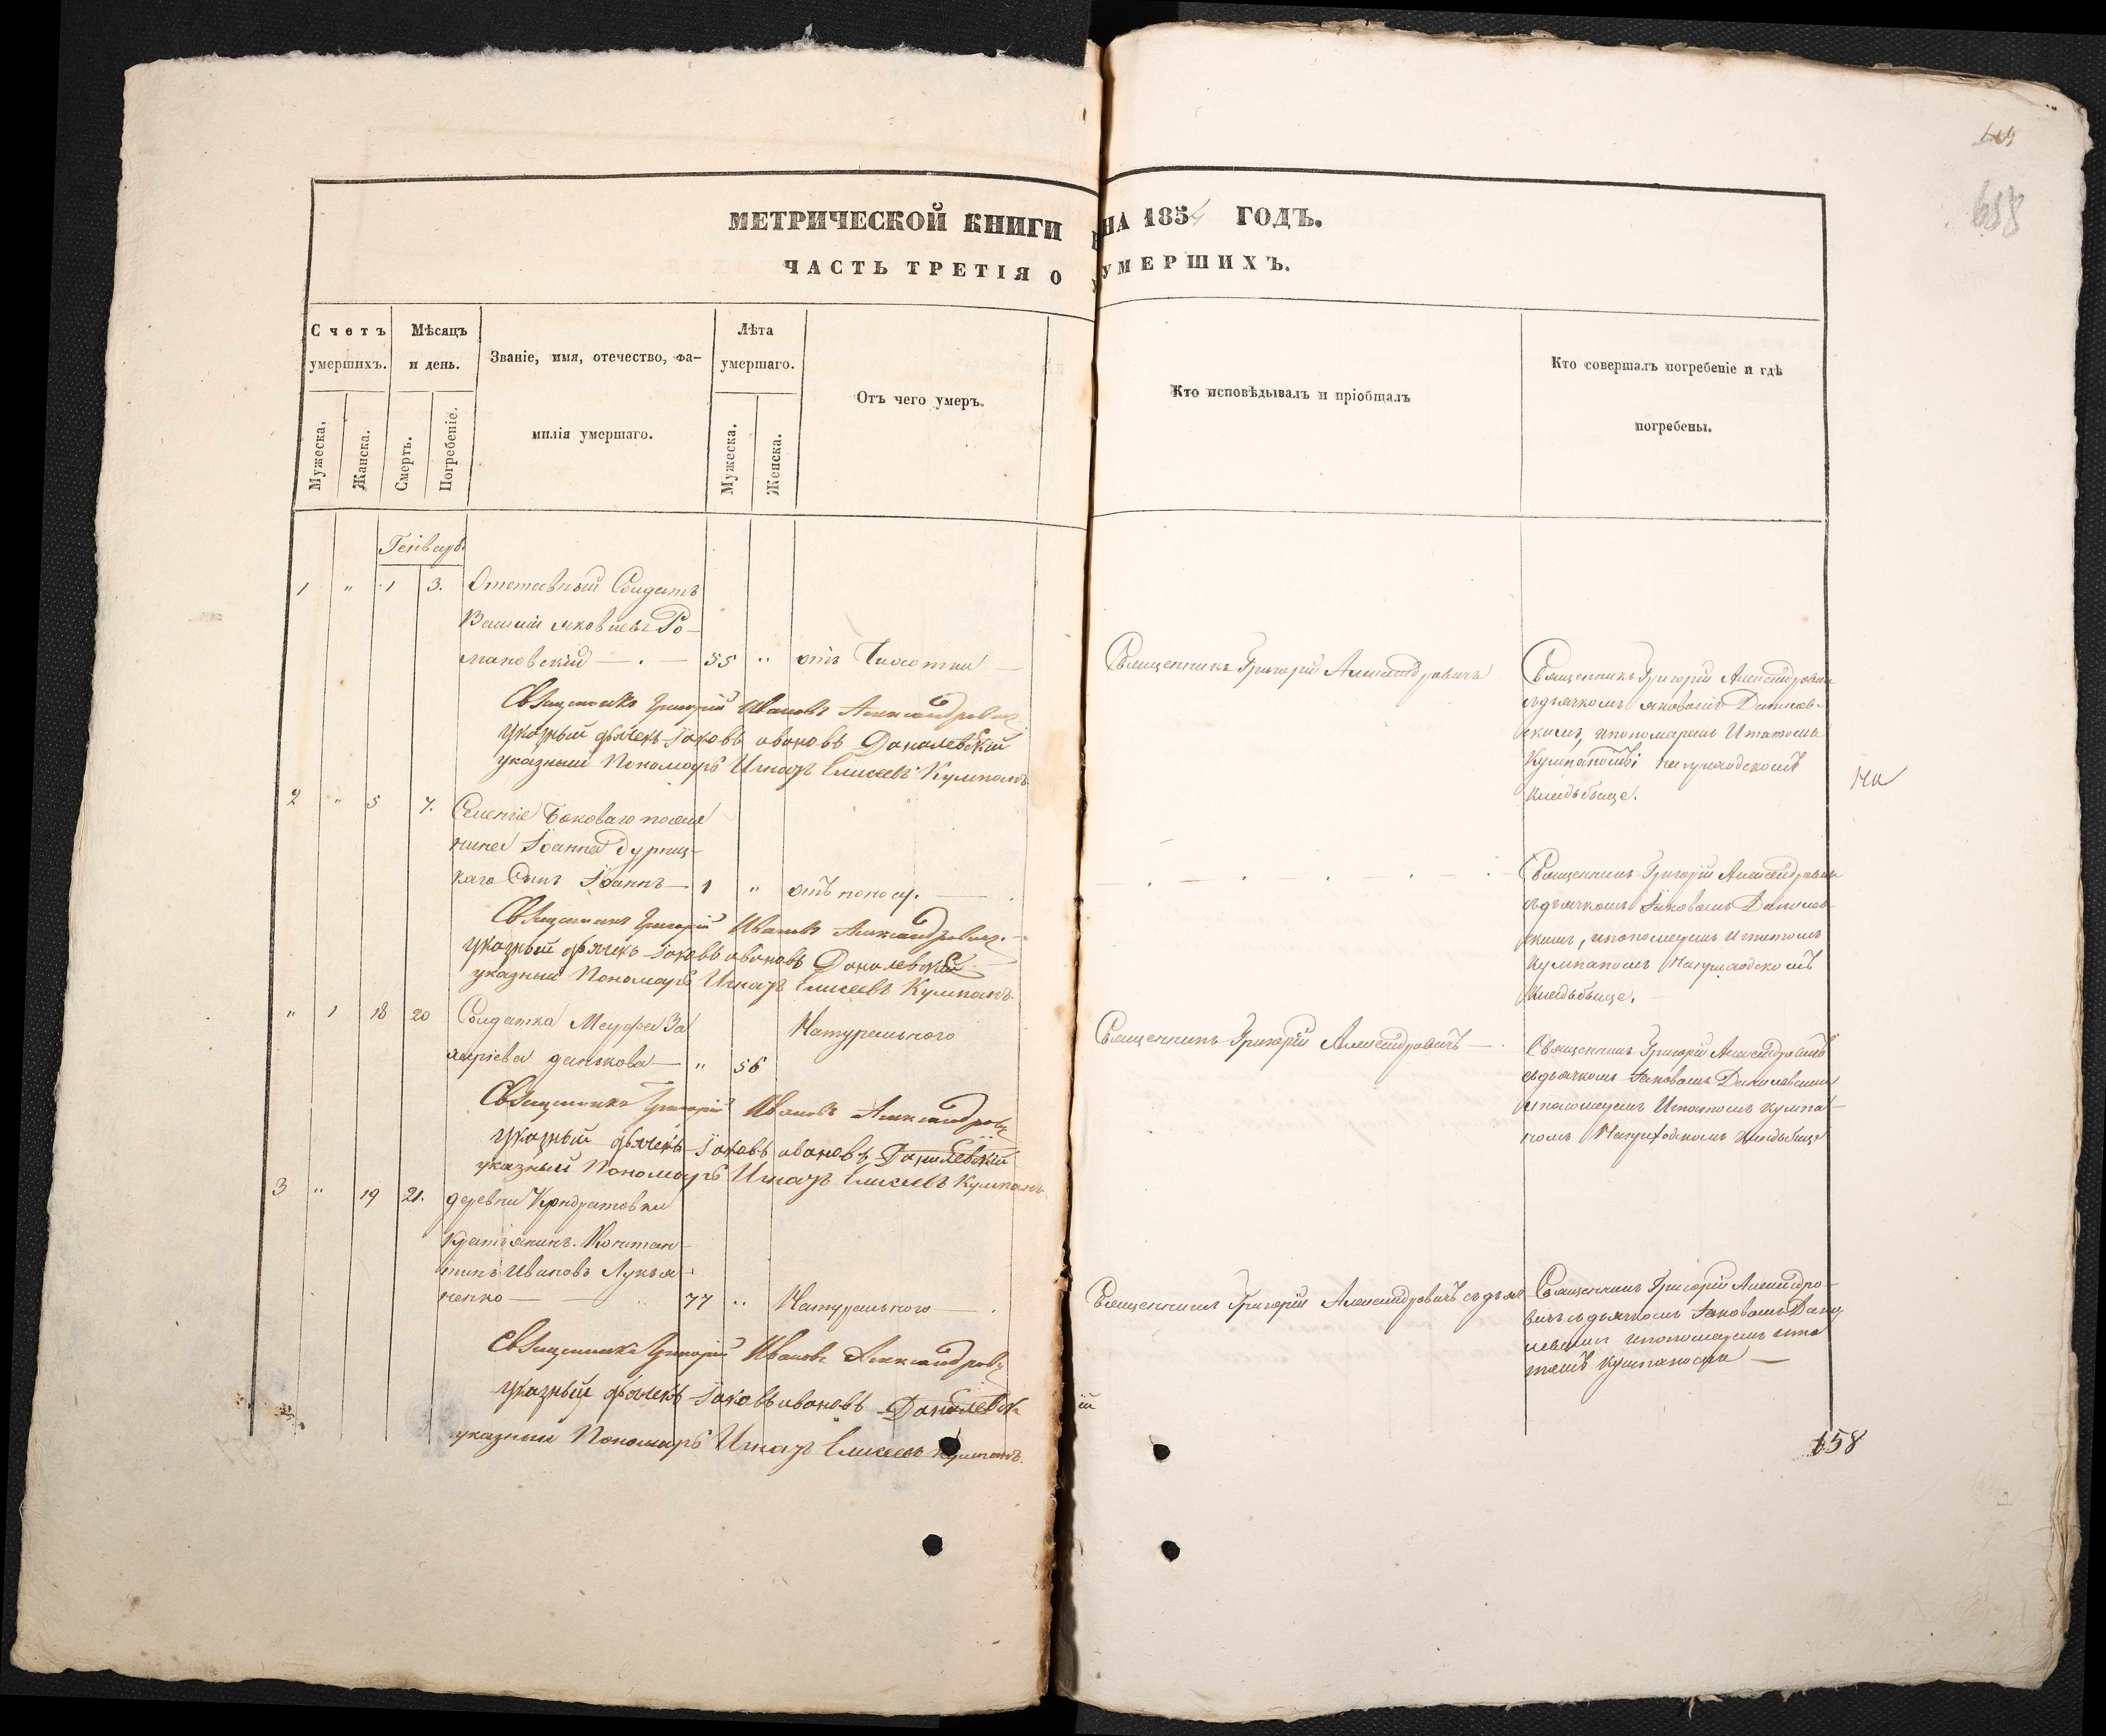 МЕТРИЧЕСКОЙ КНИГИ НА 1854 ГОДЪ.
ЧАСТЬ ТРЕТІЯ О УМЕРШИХЪ.
Счетъ умершихъ.
Мужеска.
Жанска.
Мѣсяцъ и день.
Смерть.
Погребеніе.
Званіе, имя, отечество, фа-
милія умершаго.
Лѣта умершаго.
Мужеска.
Женска.
Отъ чего умеръ.
Кто исповѣдывалъ и пріобщалъ
Кто совершалъ погребеніе и гдѣ
погребены.
658
Генварь
1 " 1 3. Отставный Солдатъ
Василій Яковлевъ Ро-
мановскій — 55 " отъ Чахотки —
Священникъ Григорій Александровичъ
Священникъ Григорій Александровичъ
съ дьячкомъ Яковомъ Данилев-
скимъ, и пономаремъ Игнатомъ
Кумпаномъ на приходскомъ
кладьбище.
на
Священникъ Григорій Ивановъ Александровичъ
указный дьячекъ Іаковъ Ивановъ Данилевскій
указный Пономарь Игнатъ Елисеевъ Кумпанъ.
2 " 5 7. Селеніе Боковаго поселя
нина Іоанна Дурниц-
каго Сынъ Іоаннъ — 1 " отъ поносу.
Священникъ Григорій Александровичъ
съ дьячкомъ Іаковомъ Данилев-
скимъ, и пономаремъ Игнатомъ
Кумпаномъ На приходскомъ
кладьбище.
Священникъ Григорій Ивановъ Александровичъ.
указный дьячекъ Іаковъ Ивановъ Данилевскій
указный Пономарь Игнатъ Елисеевъ Кумпанъ.
" 1 18 20 Солдатка Марфа За
харіева данькова — " 56 Натурального
Священникъ Григорій Александровичъ —
Священникъ Григорій Александровичъ
съ дьячкомъ Іаковомъ Данилевскимъ
и пономаремъ Игнатомъ Кумпа-
номъ На приходскомъ кладьбище
Священникъ Григорій Ивановъ Александровичъ
указный дьячекъ Іаковъ Ивановъ Данилевскій
указный Пономарь Игнатъ Елисеевъ Кумпанъ
3 " 19 21. деревни Кондратовки
Крестьянинъ Констан-
тинъ Ивановъ Лукья-
ненко — 77 " Натурального —
Священникъ Григорій Александровичъ съ дьяч
Священникъ Григорій Александро-
вичъ съ дьячкомъ Іаковомъ Дани
левскимъ и пономаремъ Игна
томъ Кумпаномъ —
Священникъ Григорій Ивановъ Александровичъ
указный дьячекъ Іаковъ Ивановъ Данилевскій
указный Пономарь Игнатъ Елисеевъ Кумпанъ.
658